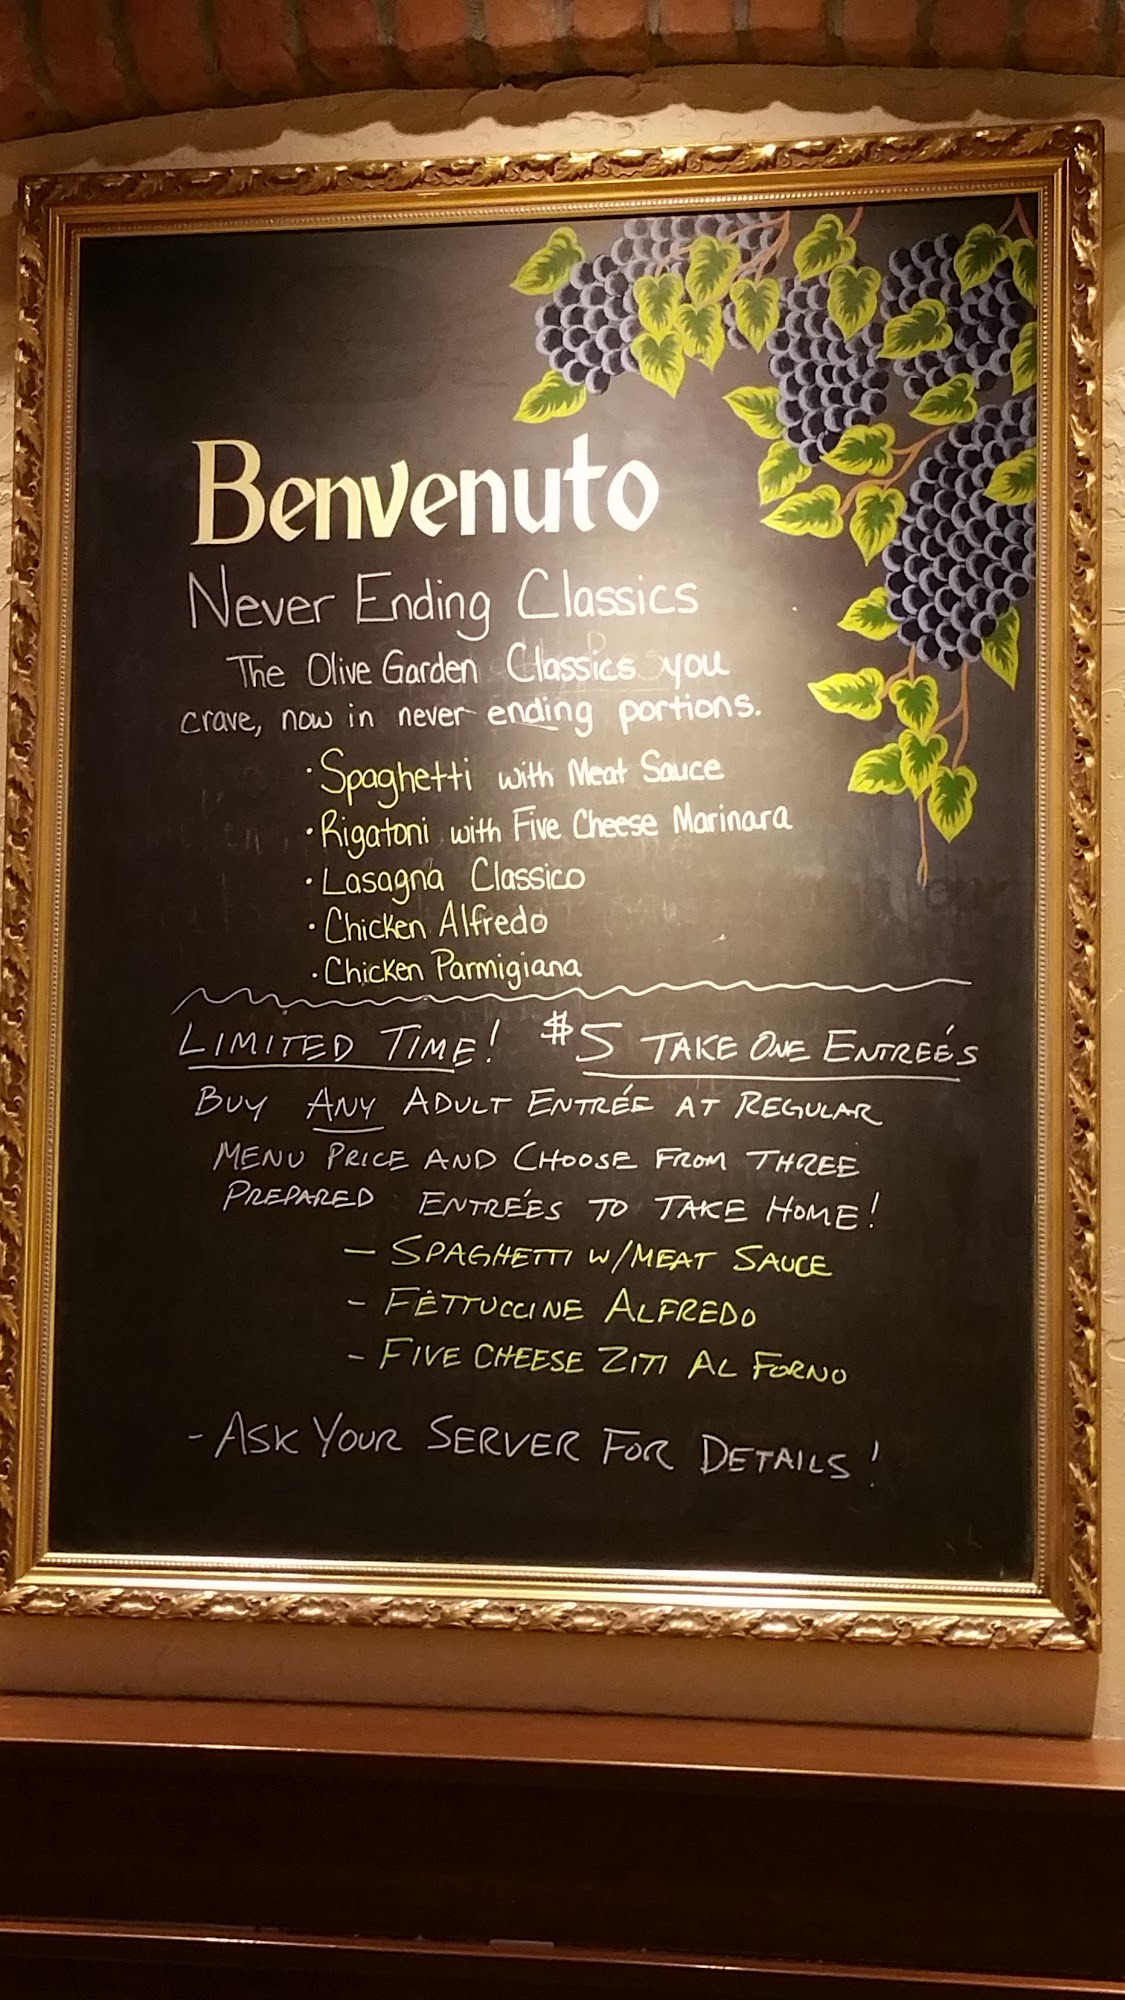 Benvenuto
Never Ending Classics
The Olive Garden Classics you
crave, now in never ending portions.
· Spaghetti with Meat Sauce
· Rigatoni with Five Cheese Marinara
· Lasagna Classico
· Chicken Alfredo
· Chicken Parmigiana
LIMITED TIME! $5 TAKE ONE ENTREÉS
BUY ANY ADULT ENTRÉE AT REGULAR
MENU PRICE AND CHOOSE FROM THREE
PREPARED ENTRÉES TO TAKE HOME!
- SPAGHETTI W/MEAT SAUCE
- FETTUCCINE ALFREDO
- FIVE CHEESE ZITI AL FORNO
- ASK YOUR SERVER FOR DETAILS!